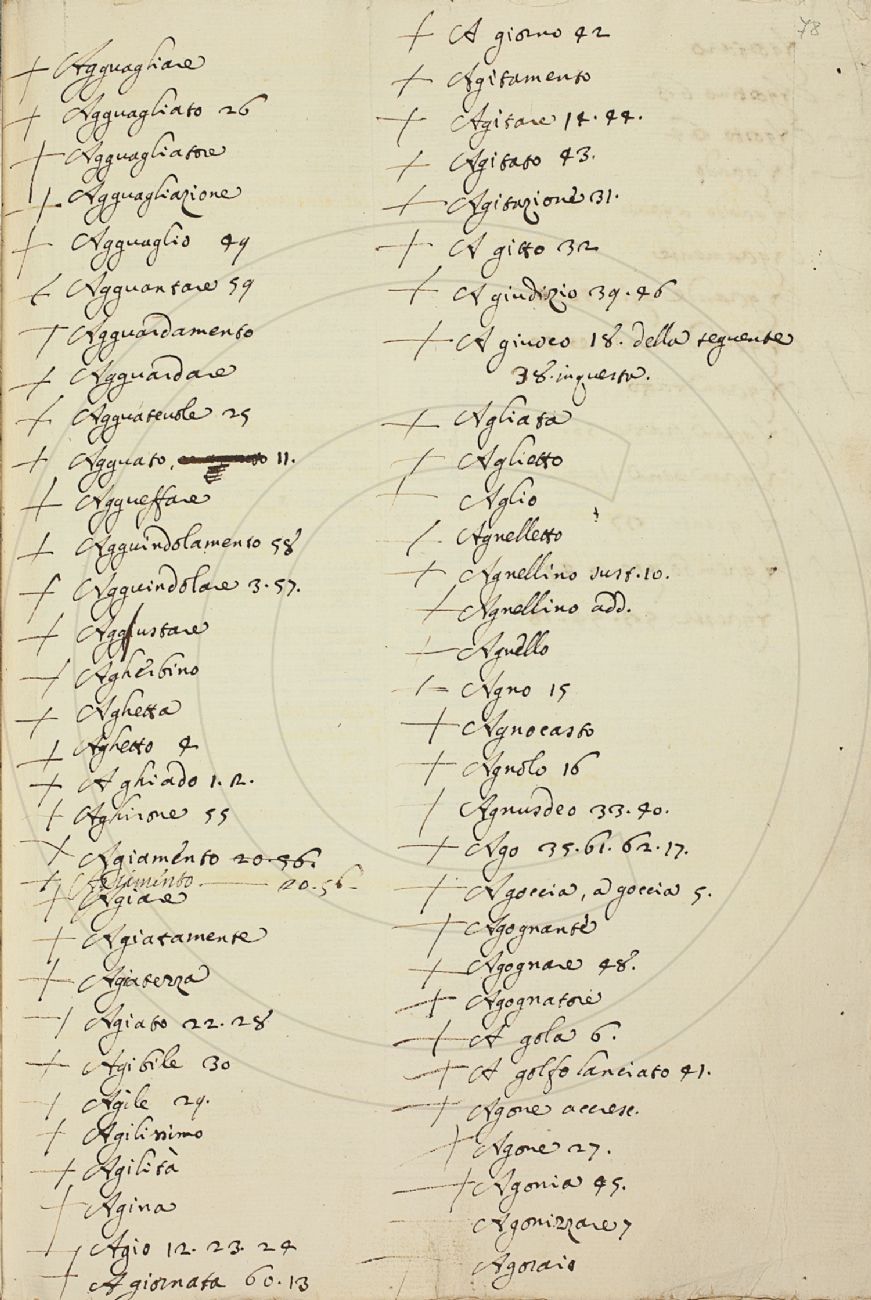 78
Agguagliare
Agguagliato 26
Agguagliatore
Agguagliazione
Agguaglio 49
Agguantare 59
Agguardamento
Agguardare
Agguateuole 25
Agguato, 11.
Aggueffare
Agguindolamento 58
Agguindolare 3. 57.
Aggiustare
Agherbino
Aghetta
Aghetto 4
A ghiado 1. 2.
Aghirone 55
Agiamento 20. 56.
Agiamento 20. 56
Agiare
Agiatamente
Agiatezza
Agiato 22. 28
Agibile 30
Agile 29.
Agilissimo
Agilità
Agina
Agio 12. 23. 24
A giornata 60. 13
A giorno 42
Agitamento
Agitare 14. 44.
Agitato 43.
Agitazione 31.
A gitto 32
A giudizio 39. 46
A giuoco 18. della seguente
38. in questa.
Agliata
Aglietto
Aglio
Agnelletto
Agnellino sust. 10.
Agnellino add.
Agnello
Agno 15
Agnocasto
Agnolo 16
Agnusdeo 33. 40.
Ago 35. 61. 62. 17.
Agoccia, a goccia 5.
Agognante
Agognare 48.
Agognatore
A gola 6.
A golfo lanciato 41.
Agone accresc.
Agone 27.
Agonia 45.
Agonizzare 7
Agoraio